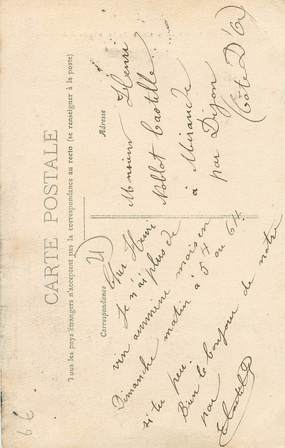 CARTE POSTALE
Tous les pays étrangers n'acceptent pas la correspondance au recto (se renseigner à la poste)
Correspondance
Adresse
Cher Henri
Je n'ai plus de
vin ammène mois en
Dimanche matin à 5h ou 6h
si tu peu.
Bien le bonjour de notre
par
Monsieur Henri
Nollet Castille
à Mirande
par Dijon
(Côte D'Or)
66